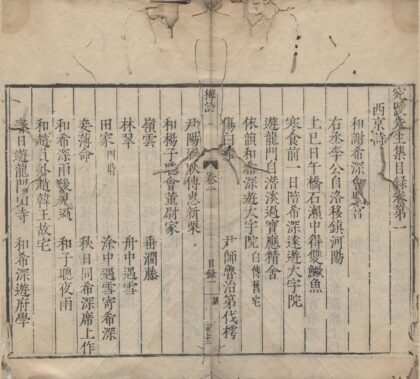 宛陵先生集目錄卷第一
西京詩
和謝希深會聖宮
右丞李公自洛移鎮河陽
上巳日午橋石瀨中得雙鱖魚
寒食前一日陪希深遠遊大字院
遊龍門自潛溪過寶應精舍
依韻和希深遊大字院 白傅舊宅
傷白雞 尹師魯治第伐樗
梅詩 卷一 目錄 一
尹陽尉耿傳惠新栗
和楊子聰會董尉家
嶺雲 垂澗藤
林翠 舟中遇雪
田家 四時 涂中遇雪寄希深
妾薄命 秋日同希深席上作
和希深雨後見過 和子聰夜雨
和趙員外趙韓王故宅
春日遊龍門山寺 和希深遊府學